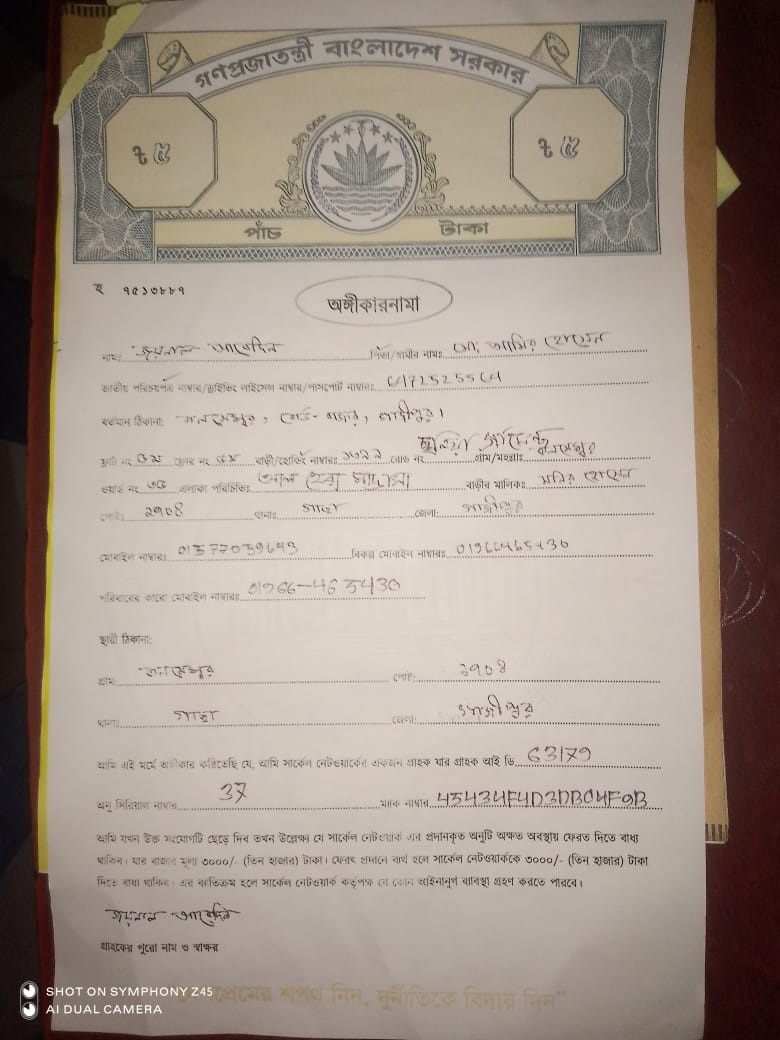 গণপ্রজাতন্ত্রী বাংলাদেশ সরকার
৳ ৫ ৳ ৫
পাঁচ টাকা
ৼ ৭৫১৩৮৮৭
অঙ্গীকারনামা
নাম: জয়নাল আবেদিন পিতা/স্বামীর নামঃ মো: আমির হোসেন
জাতীয় পরিচয়পত্র নাম্বার/ড্রাইভিং লাইসেন্স নাম্বার/পাসপোর্ট নাম্বারঃ 6472525564
বর্তমান ঠিকানা: গাজীপুর।
ফ্ল্যাট নং ফ্লোর নং বাড়ী/হোল্ডিং নাম্বারঃ রোড নং গ্রাম/মহল্লাঃ
ওয়ার্ড নং ৩৫ এলাকা পরিচিতিঃ আল হেরা মাদ্রাসা বাড়ীর মালিকঃ মনির হোসেন
পোষ্ট: ১৭০৪ থানাঃ গাছা জেলা: গাজীপুর
মোবাইল নাম্বারঃ 01577039643 বিকল্প মোবাইল নাম্বারঃ 01966465430
পরিবারের কারো মোবাইল নাম্বারঃ 01966-465430
স্থায়ী ঠিকানা:
গ্রাম: পোষ্ট: ১৭০৪
থানাঃ গাছা জেলা: গাজীপুর
আমি এই মর্মে অঙ্গীকার করিতেছি যে, আমি সার্কেল নেটওয়ার্কের একজন গ্রাহক যার গ্রাহক আই ডি 63179
অনু সিরিয়াল নাম্বার 37 ম্যাক নাম্বার 45434F4D3DBC4F9B
আমি যখন উক্ত সংযোগটি ছেড়ে দিব তখন উল্লেখ্য যে সার্কেল নেটওয়ার্ক এর প্রদানকৃত অনুটি অক্ষত অবস্থায় ফেরত দিতে বাধ্য
থাকিব। যার বাজার মূল্য ৩০০০/- (তিন হাজার) টাকা। ফেরৎ প্রদানে ব্যর্থ হলে সার্কেল নেটওয়ার্ককে ৩০০০/- (তিন হাজার) টাকা
দিতে বাধ্য থাকিব। এর ব্যতিক্রম হলে সার্কেল নেটওয়ার্ক কর্তৃপক্ষ যে কোন আইনানুগ ব্যবস্থা গ্রহণ করতে পারবে।
জয়নাল আবেদিন
গ্রাহকের পুরো নাম ও স্বাক্ষর
শপথ নিন, দুর্নীতিকে বিদায় দিন"
SHOT ON SYMPHONY Z45
AI DUAL CAMERA